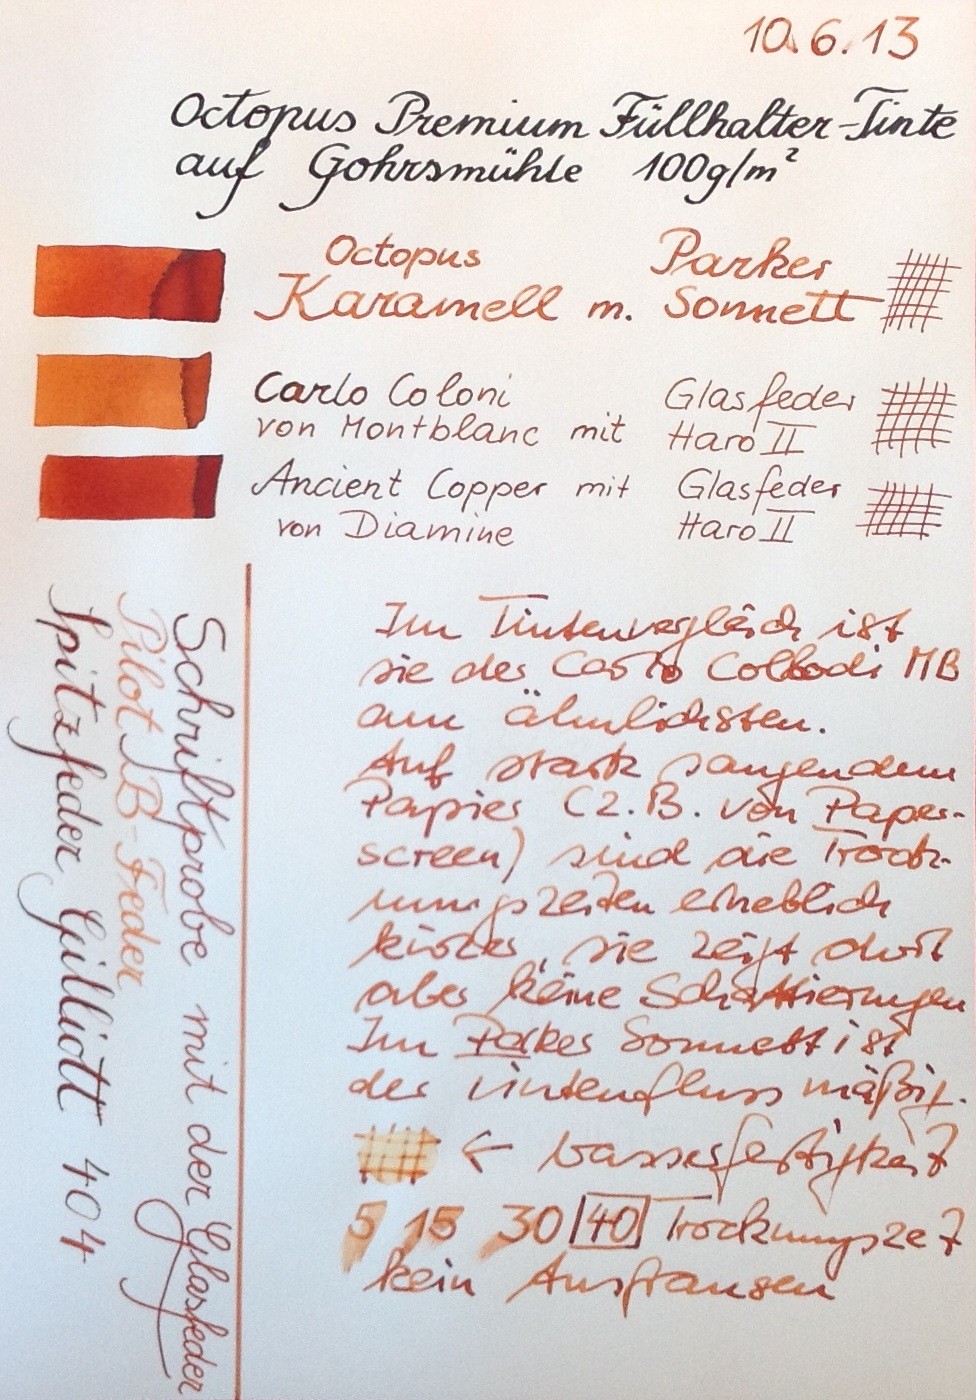 10.6.13
Octopus Premium Füllhalter-Tinte
auf Gohrsmühle 100g/m²
Octopus Parker
Karamell m. Sonnett
Carlo Coloni Glasfeder
von Montblanc mit Haro II
Ancient Copper mit Glasfeder
von Diamine Haro II
Im Tintenvergleich ist
sie der Carlo Collodi MB
am ähnlichsten.
Auf stark saugendem
Papier (z.B. von Paper-
screen) sind die Trock-
nungszeiten erheblich
kürzer, sie zeigt dort
aber keine Schattierungen
Im Parker Sonnett ist
der Tintenfluss mäßig.
← Wasserfestigkeit
5 15 30 40 Trocknungszeit
kein Ausfransen
Schriftprobe mit der Glasfeder
Pilot B-Feder
Spitzfeder Gilliott 404